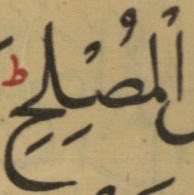 الْمُصْلِحِ ط